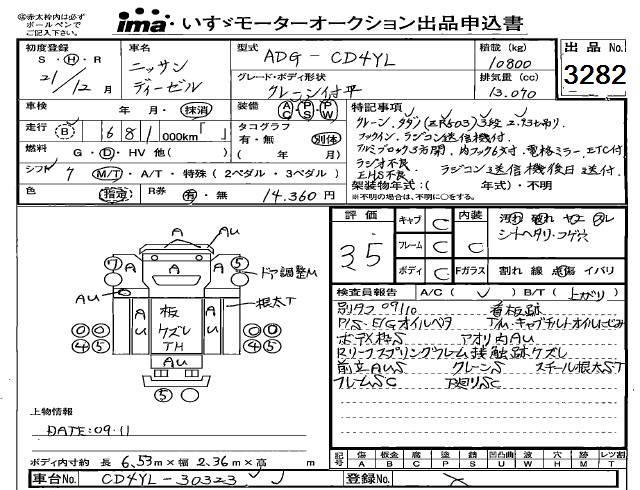 ㊟赤太枠内は必ず
ボールペンで
ご記入下さい。
ima いすゞモーターオークション出品申込書
初度登録
S・Ⓗ・R
21/12月
車名
ニッサン
ディーゼル
型式
ADG-CD4YL
グレード・ボディ形状
クレーン付平
積載(kg)
10800
排気量(cc)
13.070
出品No.
3282
車検 年・月・抹消
装備 AC PS PW
走行 B 681 000km「 」
タコグラフ
有・無 別体
( 年 月)
燃料 G・D・HV 他( )
シフト 7 M/T・A/T・特殊(2ペダル・3ペダル)
色 指定 R券 有・無 14.360円
特記事項
クレーン.タダノ(ZR603)3段 2.93t吊り.
フックイン.ラジコン送信機付.
アルミブロック3方開.内フック6対付.電格ミラー.ETC付
ラジオ不良. ラジコン送信機後日送付.
EHS不良
架装物年式:( 年式)・不明
※不明の場合は、不明に○をする。
評価
35
キャブ C
フレーム C
ボディ C
内装
C
シートヘタリ・コゲ穴
Fガラス 割れ 線 点傷 イバリ
検査員報告 A/C( ✓ ) B/T( 上がり )
別タコ 09110 看板跡
P/S・E/Gオイルベタ T/M・キャブチルトオイルにじみ
ボデ×枠S アオリ内AU
Rリーフスプリングフレーム接触跡ケズレ
前立AUS クレーンS スチール根太ST
フレームSC 下廻りSC
A AU
A A A
⑦ ⑤ ドア調整M
AU
AU 板 AU 根太T
ケズレ
TH
④⑤ ④⑤
AU
⑤
上物情報
DATE:09.11
ボディ内寸約 長 6.53m×幅 2.36m×高 m
記号 傷 板金 腐 塗 錆 凹凸曲 波 穴 跡 レツ割
A B C P S U W H M T
車台No. CD4YL-30323
登録No.